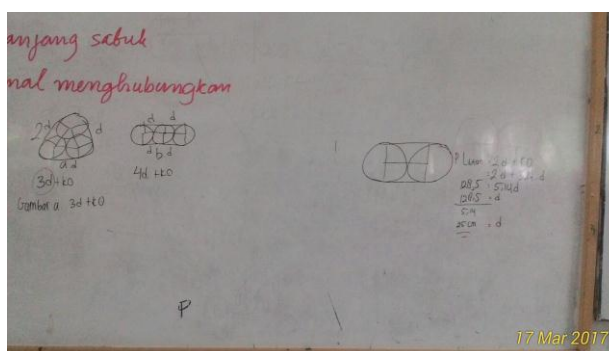 anjang sabuk
nal menghubungkan
2d d
a d
3d + kO
Gambar a 3d + kO
d d
d b d
4d + kO
P 2d + kO
= 2d + d
128,5 = 5,14d
128,5 = d
5,14
25 cm = d
P
17 Mar 2017